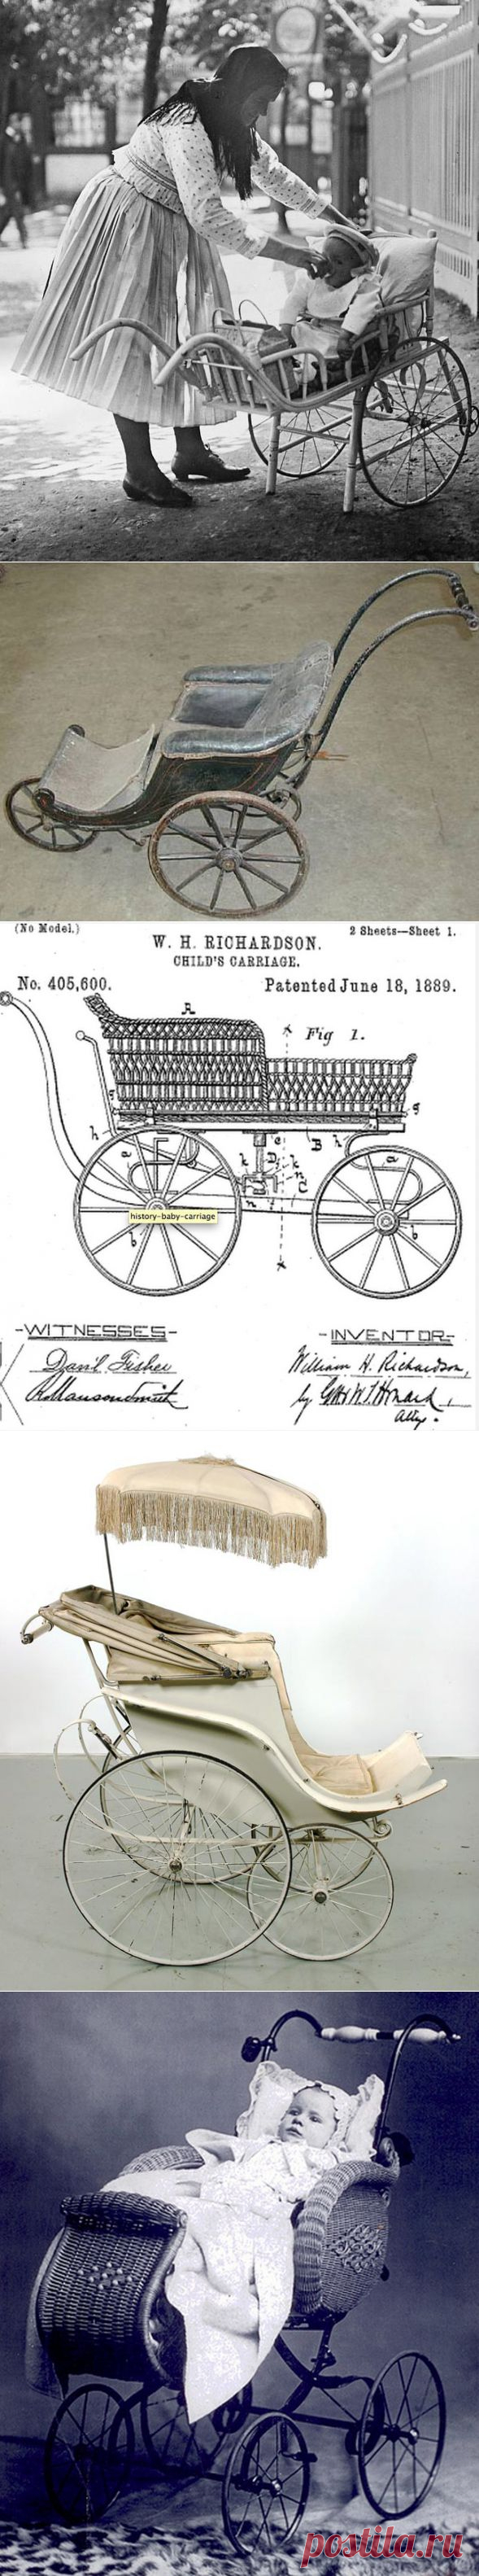 (No Model.)
2 Sheets—Sheet 1.
W. H. RICHARDSON.
CHILD'S CARRIAGE.
No. 405,600.
Patented June 18, 1889.
A
Fig 1.
g
g
h
B
h
a
e
D
k
k
a
C
n
history-baby-carriage
b
b
-WITNESSES-
-INVENTOR-
Danl Fisher
William H. Richardson,
by Geo W. T. Howard,
Atty.
postila.ru